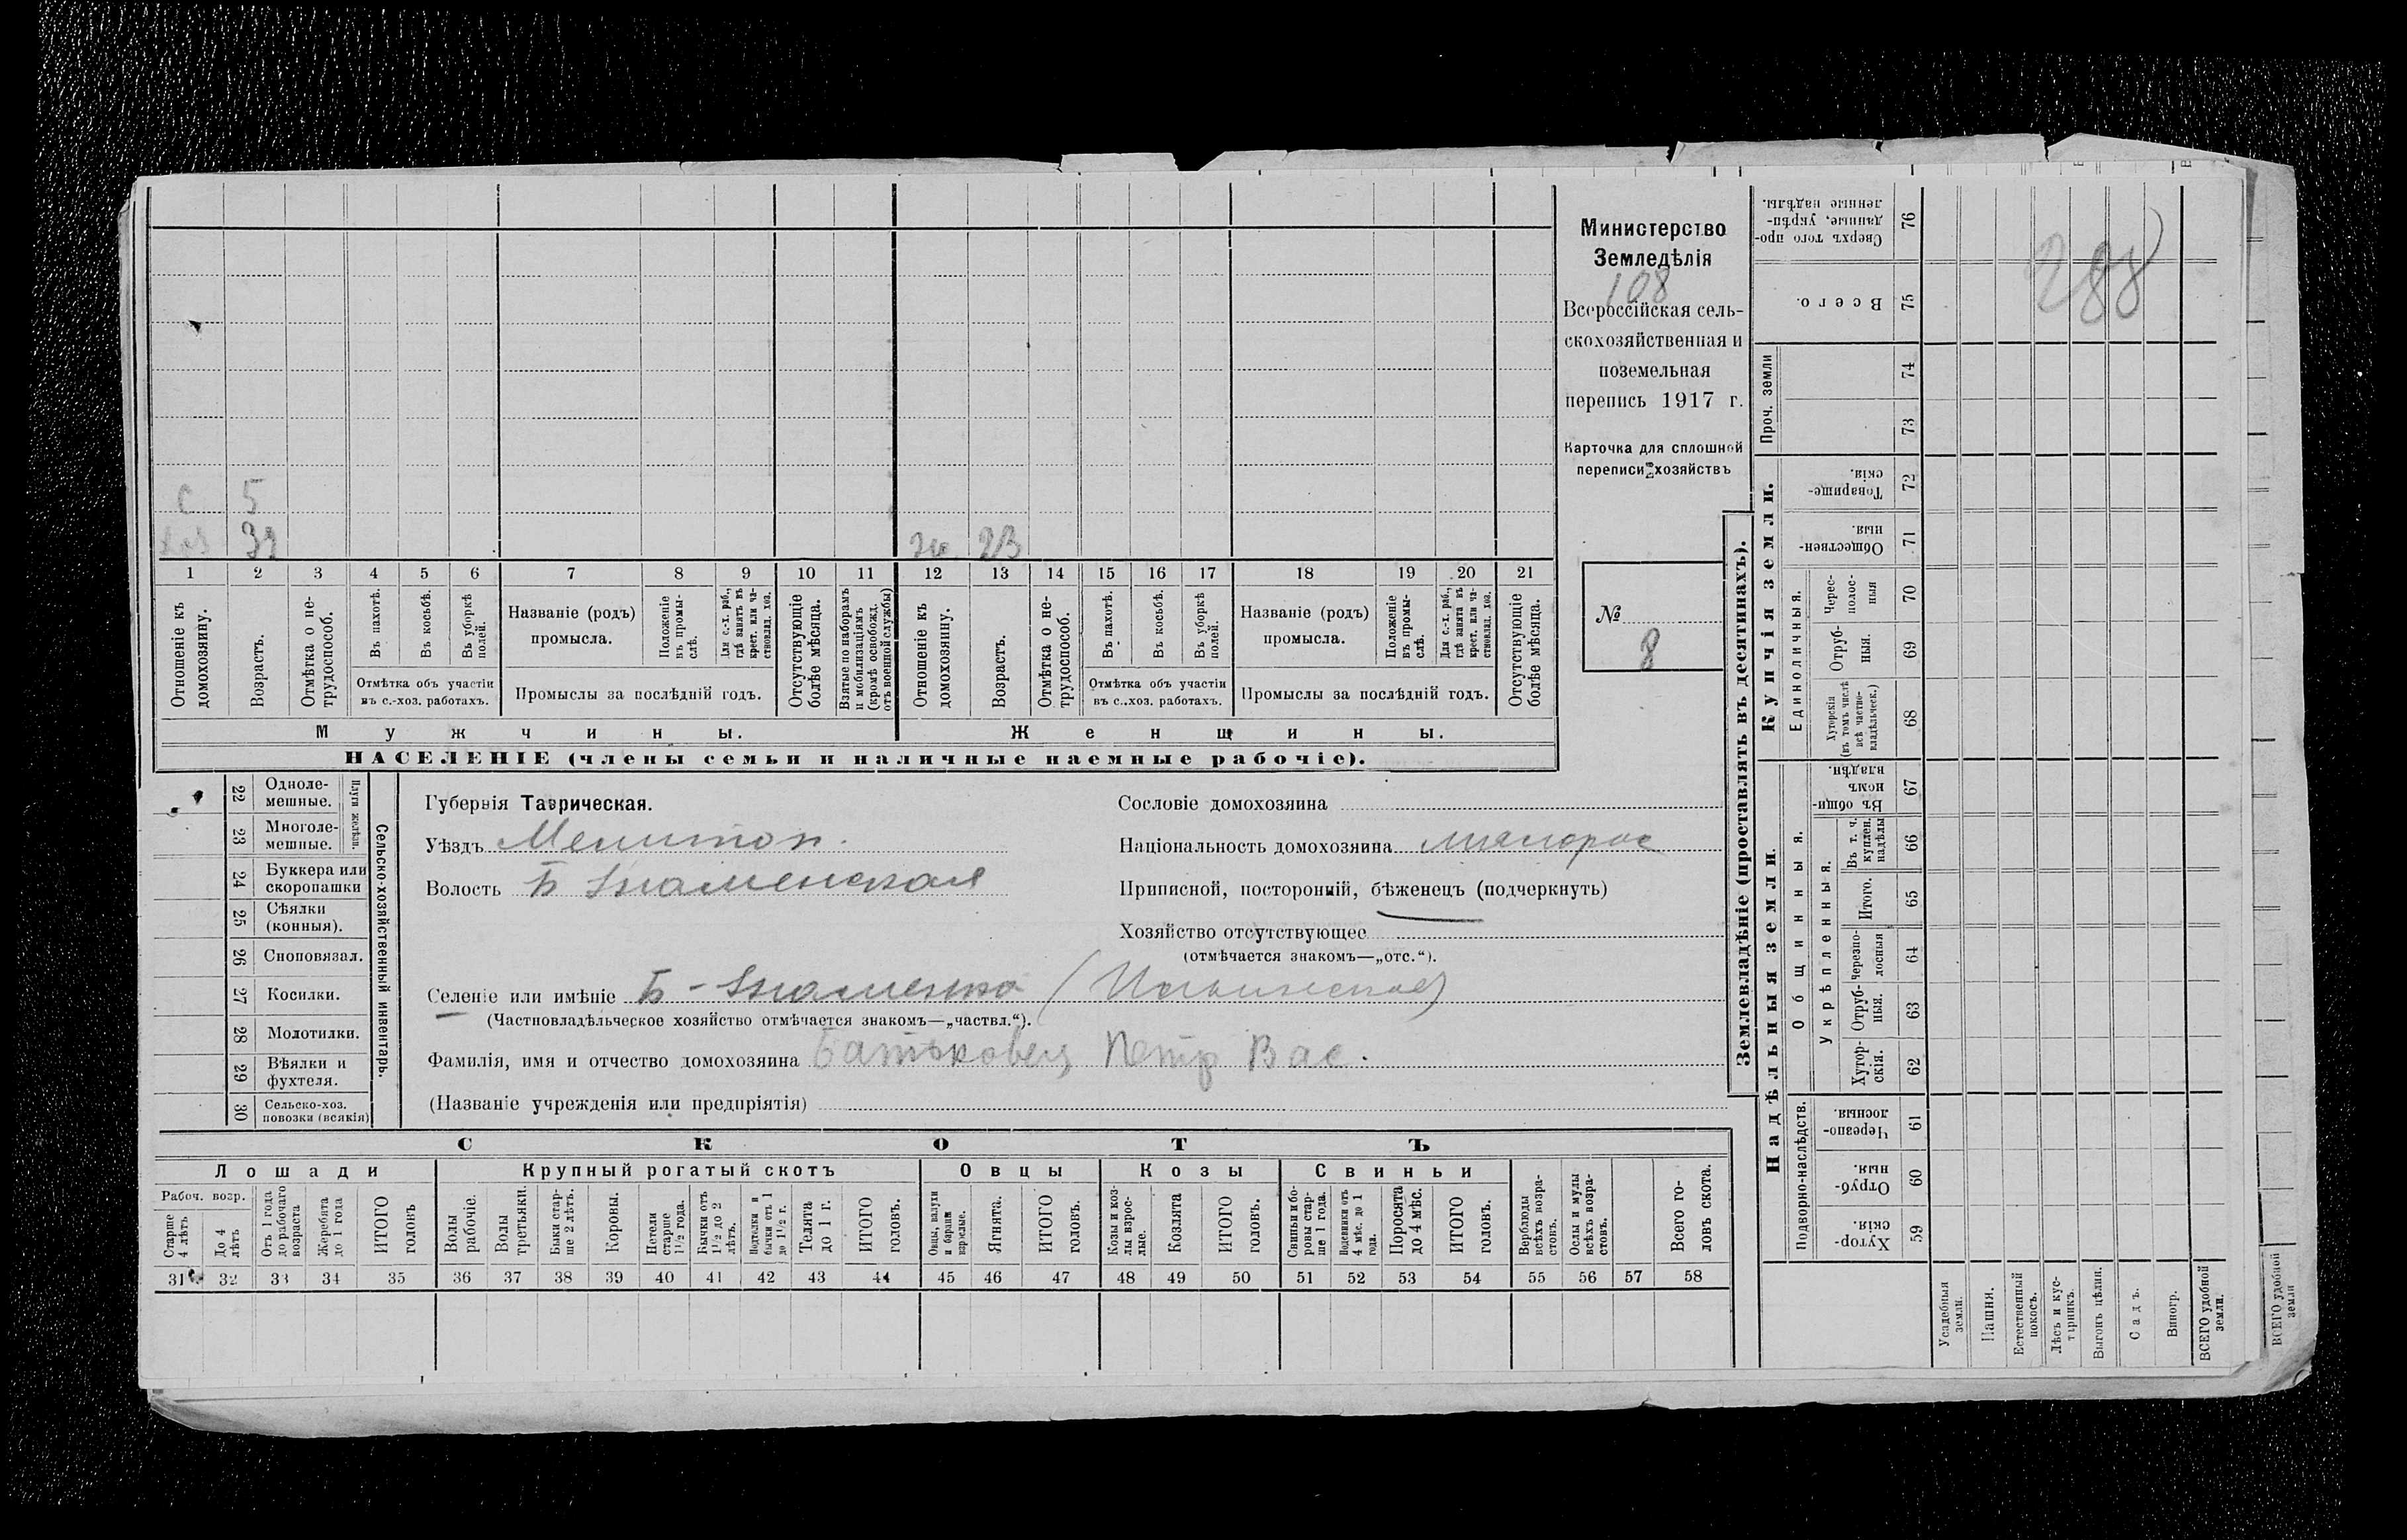 Министерство
Земледѣлія
108
Всероссійская сель-
скохозяйственная и
поземельная
перепись 1917 г.
Карточка для сплошной
переписи хозяйствъ
№
8
288
с 5
хоз 39
ж 23
1 2 3 4 5 6 7 8 9 10 11 12 13 14 15 16 17 18 19 20 21
Отношеніе къ домохозяину.
Возрастъ.
Отмѣтка о не-трудоспособ.
Въ пахотѣ.
Въ косьбѣ.
Въ уборкѣ полей.
Отмѣтка объ участіи
въ с.-хоз. работахъ.
Названіе (родъ)
промысла.
Положеніе въ промы-слѣ.
Для с.-х. раб., гдѣ занятъ въ крест. или ча-стновлад. хоз.
Промыслы за послѣдній годъ.
Отсутствующіе болѣе мѣсяца.
Взятые по наборамъ и мобилизаціямъ (кромѣ освобожд. отъ военной службы)
Отношеніе къ домохозяину.
Возрастъ.
Отмѣтка о не-трудоспособ.
Въ пахотѣ.
Въ косьбѣ.
Въ уборкѣ полей.
Отмѣтка объ участіи
въ с..хоз. работахъ.
Названіе (родъ)
промысла.
Положеніе въ промы-слѣ.
Для с.-х. раб., гдѣ занята въ крест. или ча-стновлад. хоз.
Промыслы за послѣдній годъ.
Отсутствующіе болѣе мѣсяца.
Мужчины.
Женщины.
НАСЕЛЕНІЕ (члены семьи и наличные наемные рабочіе).
22 Одноле-мешные.
23 Многоле-мешные.
Плуги желѣзн.
24 Буккера или скоропашки
25 Сѣялки (конныя).
26 Сноповязал.
27 Косилки.
28 Молотилки.
29 Вѣялки и фухтеля.
30 Сельско-хоз. повозки (всякія)
Сельско-хозяйственный инвентарь.
Губернія Таврическая.
Уѣздъ Мелитоп.
Волость Б Знаменская
Сословіе домохозяина
Національность домохозяина малорос
Приписной, посторонній, бѣженецъ (подчеркнуть)
Хозяйство отсутствующее
(отмѣчается знакомъ—„отс.“).
Селеніе или имѣніе Б-Знаменка
(Частновладѣльческое хозяйство отмѣчается знакомъ—„частвл.“).
Фамилія, имя и отчество домохозяина Батьковец Петр Вас.
(Названіе учрежденія или предпріятія)
СКОТЪ
Лошади
Крупный рогатый скотъ
Овцы
Козы
Свиньи
Рабоч. возр.
Старше 4 лѣтъ
До 4 лѣтъ
Отъ 1 года до рабочаго возраста
Жеребята до 1 года
ИТОГО головъ
Волы рабочіе.
Волы третьяки.
Быки стар-ше 2 лѣтъ.
Коровы.
Нетели старше 1 1/2 года.
Бычки отъ 1 1/2 до 2 лѣтъ.
Подтелки и бычки отъ 1 до 1 1/2 г.
Телята до 1 г.
ИТОГО головъ.
Овцы, валухи и бараны взрослые.
Ягнята.
ИТОГО головъ.
Козы и коз-лы взрос-лые.
Козлята
ИТОГО головъ.
Свиньи и бо-ровы стар-ше 1 года.
Подсвинки отъ 4 мѣс. до 1 года.
Поросята до 4 мѣс.
ИТОГО головъ.
Верблюды всѣхъ возра-стовъ.
Ослы и мулы всѣхъ возра-стовъ.
Всего го-ловъ скота.
31 32 33 34 35 36 37 38 39 40 41 42 43 44 45 46 47 48 49 50 51 52 53 54 55 56 57 58
Землевладѣніе (проставлять въ десятинахъ).
Надѣльныя земли.
Подворно-наслѣдств.
Хутор-скія. 59
Отруб-ныя. 60
Черезпо-лосныя. 61
Общинныя.
Укрѣпленныя.
Хутор-скія. 62
Отруб-ныя. 63
Черезпо-лосныя 64
Итого. 65
Въ т. ч. куплен. надѣлы 66
Въ общи-номъ владѣн. 67
Купчія земли.
Единоличныя.
Хуторскія (въ томъ числѣ всѣ частно-владѣльческ.) 68
Отруб-ныя. 69
Черес-полос-ныя 70
Обществен-ныя. 71
Товарище-скія. 72
Проч. земли
73
74
Всего. 75
Сверхъ того про-данные, укрѣп-ленные надѣлы. 76
Усадебныя земли.
Пашня.
Естественный покосъ.
Лѣсъ и кус-тарникъ.
Выгонъ цѣлин.
Садъ.
Виногр.
ВСЕГО удобной земли.
ВСЕГО удобной земли